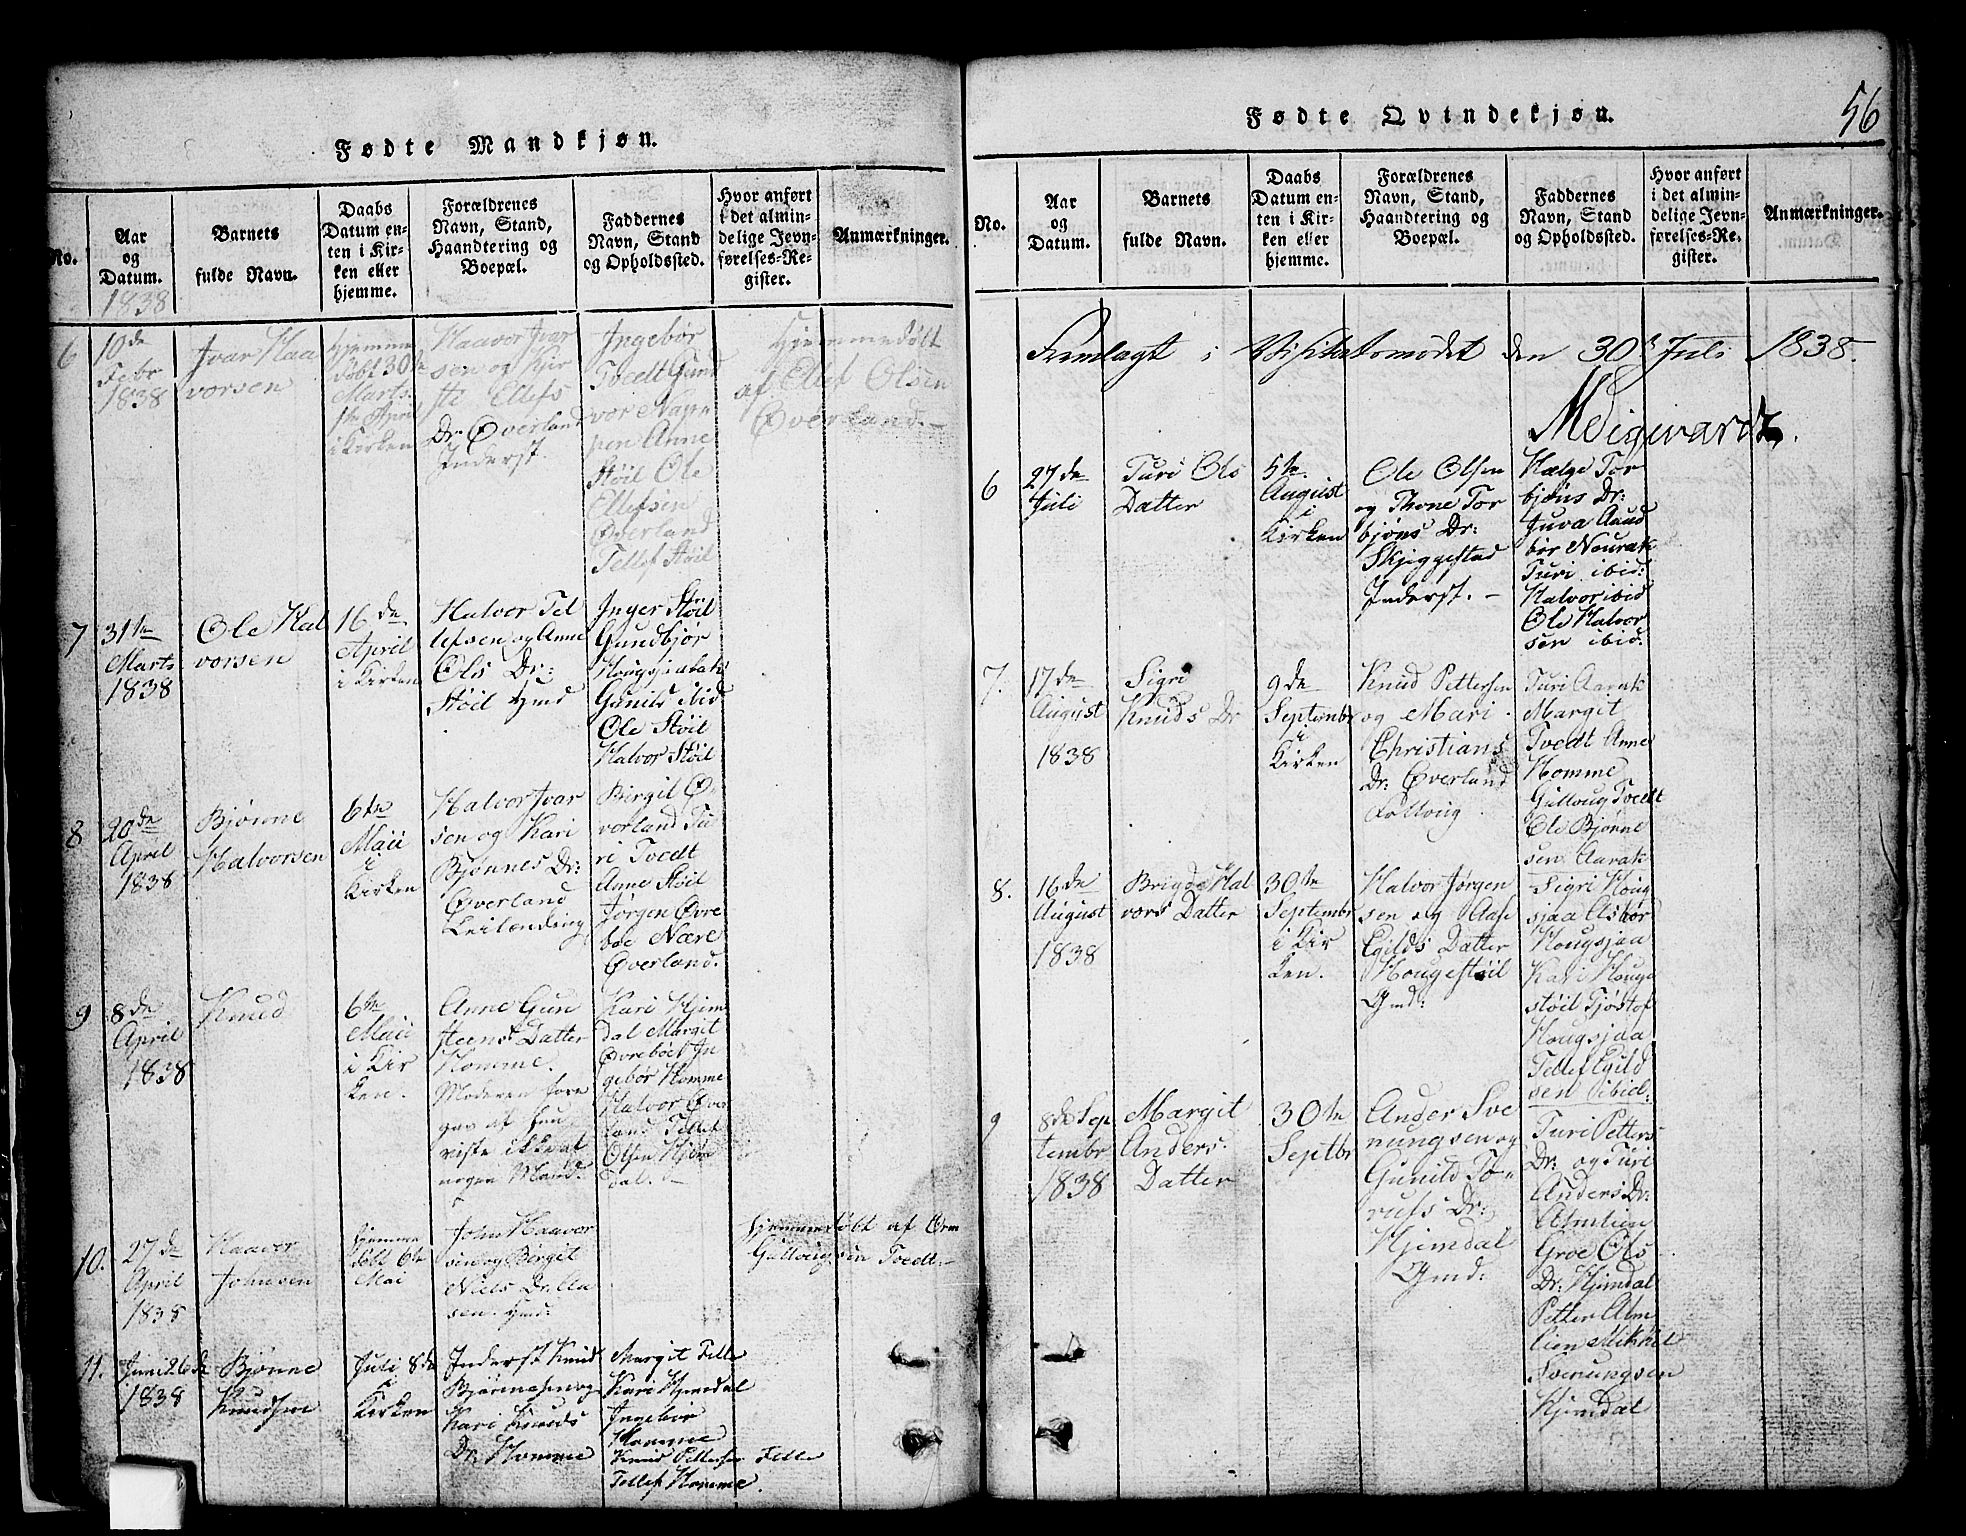 Fødte Mandkjøn.
No.
Aar
og
Datum.
Barnets
fulde Navn.
Daabs
Datum en-
ten i Kir-
ken eller
hjemme.
Forældrenes
Navn, Stand,
Haandtering og
Boepæl.
Faddernes
Navn, Stand
og Opholdssted.
Hvor anført
i det almin-
delige Jevn-
førelses-Re-
gister.
Anmærkninger.
1838
6
10de
Febr
1838
Ivar Haa
vorsen
Hjemme
døbt 30te
Marts.
1ste April
i Kirken
Haavor Ivar
sen og Kjer
sti Ellefs
Dr: Øverland
Inderst.
Ingebør
Tvedt Gund
vor Nape
pen Anne
Støil Ole
Ellefsen
Øverland
Tellef Støil
Hjemmedøbt
af Ellef Olsen
Øverland.
7
31te
Marts
1838
Ole Hal
vorsen
16de
April
i Kirken
Halvor Tel
lefsen og Anne
Ols Dr:
Støil Hmd
Inger Støil
Gundbjør
Gunild ibid
Ole Støil
Halvor Støil
8
20de
April
1838
Bjønne
Halvorsen
6te
Maii
i
Kirken
Halvor Ivar
sen og Kari
Bjønnes Dr:
Øverland
Leilænding
Birgit Ø
verland Tu
ri Tvedt
Anne Støil
Jørgen Øvre
bøe Nære
Øverland.
9
8de
April
1838
Knud
6te
Maii
i Kir
ken.
Anne Gun
steens Datter
Homme.
Moderen fore
gav af hun
viste ikke af
nogen Mand.
Kari Hjem
dal Margit
Øvrebøe In
gebør Homme
Halvor Øver
land Tellef
Olsen Hjem
dal.
10.
27de
April
1838
Haavor
Johnsen
Hjemme
døbt 6te
Mai
John Haavor
sen og Bergit
Niels Dr. Aa
sen. Hmd:
Hjemmedøbt af Orm
Gullougsen Tvedt
11.
Juni 26de
1838
Bjønne
Knudsen
Juli 8de
i
Kirken
Inderst Knud
Bjørnesen og
Kari Knuds
Dr. Homme
Margit Felle
Kari Hjemdal
Ingebør
Homme
Knud Pettersen Felle
Tellef Homme.
56
Fødte Qvindekjøn.
No.
Aar
og
Datum.
Barnets
fulde Navn.
Daabs
Datum en-
ten i Kir-
ken eller
hjemme.
Forældrenes
Navn, Stand,
Haandtering og
Boepæl.
Faddernes
Navn, Stand
og Opholdssted.
Hvor anført
i det almin-
delige Jevn-
førelses-Re-
gister.
Anmærkninger.
Fremlagt i Visitatsmødet den 30te Juli 1838.
6
27de
Juli
Turi Ols
Datter
5te
August
i
Kirken
Ole Olsen
og Thone Tor
bjøns Dr:
Skjeggestad
Inderst.
Hælge Tor
bjøns Dr:
Juva Aand
bør Nourak
Turi ibid:
Halvor ibid
Ole Halvor
sen ibid.
7.
17de
August
1838
Sigri
Knuds Dr
9de
Septembr
i
Kirken
Knud Pettersen
og Mari
Christians
Dr. Øverland
Turi Aarak
Margit
Tvedt Anne
Homme
Gulloug Tvedt
Ole Bjønne
sen Aarak
8.
16de
August
1838
Brigde Hal
vors Datter
30te
Septembr
i Kir
ken.
Halvor Jørgen
sen og Aase
Egilds Datter
Hougestøil
Gmd:
Sigri Houg
sjaa Asbør
Hougsjaa
Kari Houge
støil Tjøstof
Hougsjaa
Tellef Egild
sen ibid:
9
8de Sep
tembr
1838
Margit
Anders
Datter
30te
Septbr
Ander Sve
nungsen og
Gunild To=
rufs Dr:
Hjemdal
Gmd:
Turi Petters
Dr: og Turi
Anders Dr:
Almlien
Groe Ols
Dr: Hjemdal
Petter Alm
lien Mikkel
Svenungsen
Hjemdal